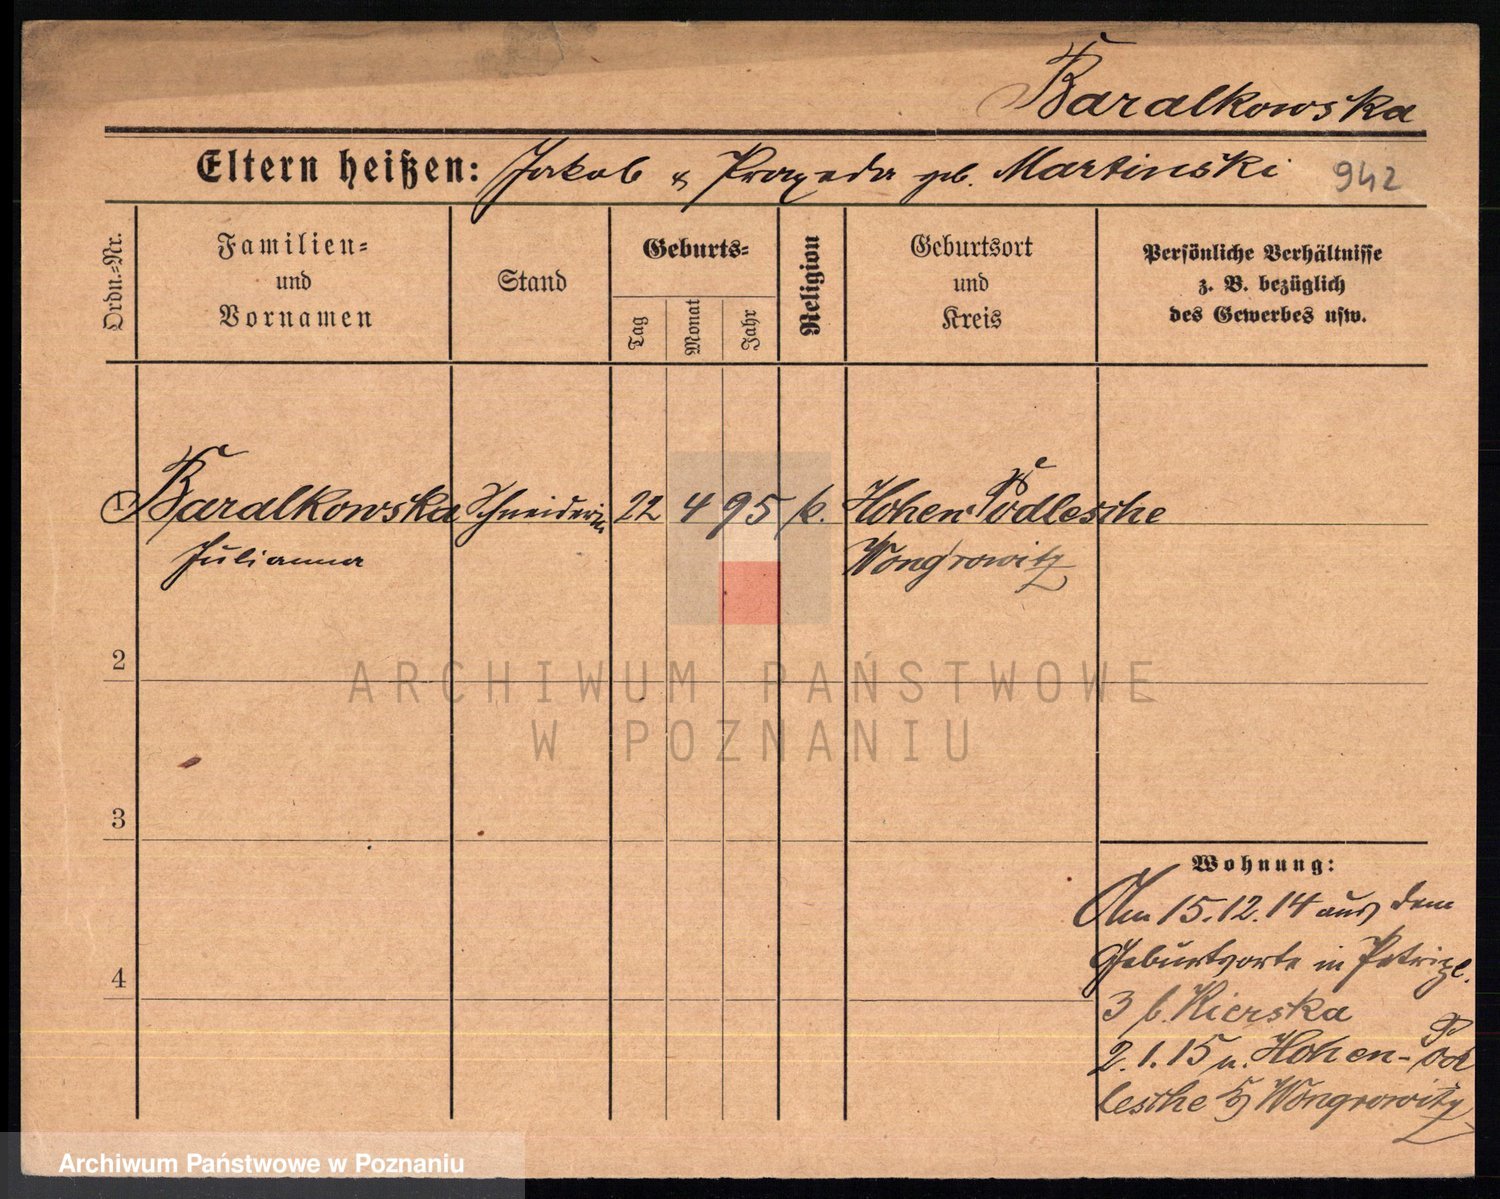 Baralkowska
Eltern heißen: Jakob & Praxeda geb. Martinski 942
Ordn.-Nr.
Familien-
und
Vornamen
Stand
Geburts-
Tag
Monat
Jahr
Religion
Geburtsort
und
Kreis
Persönliche Verhältnisse
z. B. bezüglich
des Gewerbes usw.
1 Baralkowska Schneiderin 22 4 95 k. Hohen Podlesche
Julianna Wongrowitz
2
ARCHIWUM PAŃSTWOWE
W POZNANIU
3
Wohnung:
Am 15.12.14 aus dem
Geburtsorte in
4
3 b. Kierska
2.1.15 n. Hohen-Pod
lesche Wongrowitz
Archiwum Państwowe w Poznaniu